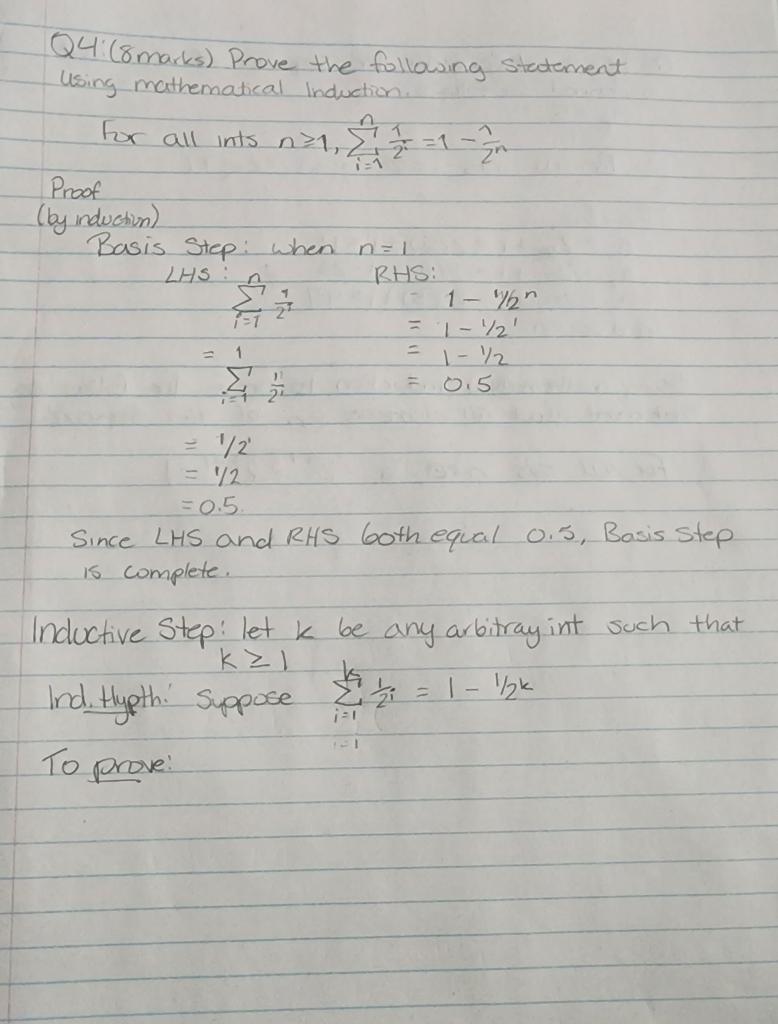 Q4: (8 marks) Prove the following statement
Using mathematical Induction.
For all ints n≥1, ∑_{i=1}^{n} 1/2^i = 1 - 1/2^n
Proof
(by induction)
Basis Step: when n=1
LHS: RHS:
∑_{i=1}^{n} 1/2^i 1 - 1/2^n
= 1 - 1/2^1
= ∑_{i=1}^{1} 1/2^i = 1 - 1/2
= 0.5
= 1/2^1
= 1/2
= 0.5
Since LHS and RHS both equal 0.5, Basis Step
is complete.
Inductive Step: let k be any arbitray int such that
k ≥ 1
Ind. Hypth: Suppose ∑_{i=1}^{k} 1/2^i = 1 - 1/2^k
i=1
To prove: